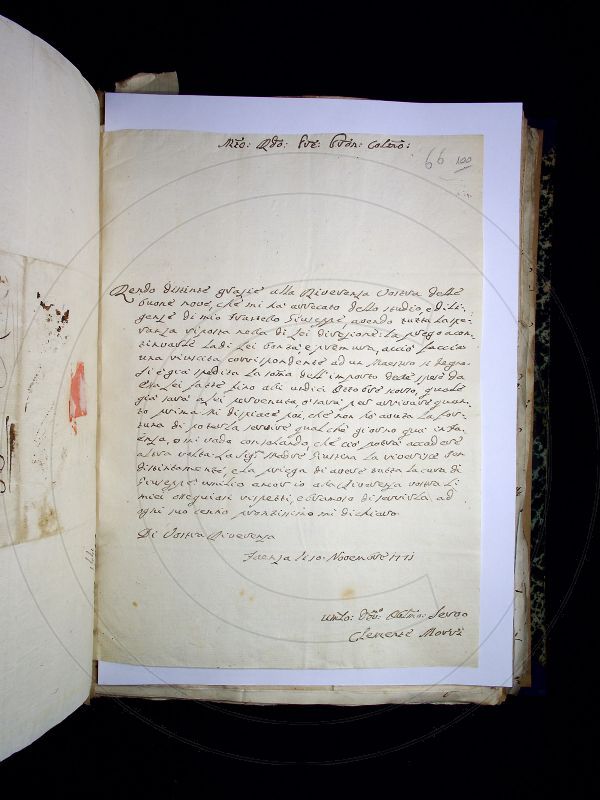 Mto: Rdo: Pre: Pron: Colmo:
66 100
Rendo distinte grazie alla Riverenza Vostra delle
buone nove, che mi ha avvecato dello studio, e dili-
genze di mio Fratello Giuseppe, avendo tutta la spe-
ranza riposta nella di lei direzione: La prego a con-
tinuarle la di lei bontà e premura, acciò faccia
una riuscita corrispondente ad un Maestro si degno
Si è già spedita la soma dell' importo delle spese da
Essa lei fatte fino alli undici Ottobre scorso, quale
già sarà a lei pervenuta, o sarà per arrivare quan-
to prima. Mi dispiace poi, che non hò avuta la for-
tuna di poterla servire qualche giorno quà in Fa-
enza, e mi vado consolando, che ciò potrà accadere
altra volta. La Sigra Madre Giustina La riverisce ben
distintamente, e la priega di avere tutta la cura di
Giuseppe umilio ancor io alla Riverenza vostra li
miei ossequiosi rispetti, e bramoso di servirla ad
ogni suo cenno prontissimo mi dichiaro
Di Vostra Riverenza
Faenza li 10: Novembre 1771
Umlo: Devo: Oblmo: Servo
Clemente Morri